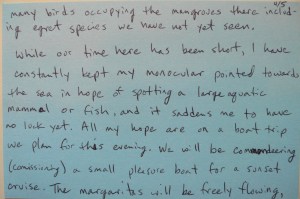 4/5
many birds occupying the mangroves there includ-
ing egret species we have not yet seen.
While our time here has been short, I have
constantly kept my monocular pointed towards
the sea in hope of spotting a large aquatic
mammal or fish, and it saddens me to have
no luck yet. All my hope are on a boat trip
we plan for this evening. We will be commandeering
(comissioning) a small pleasure boat for a sunset
cruise. The margaritas will be freely flowing,